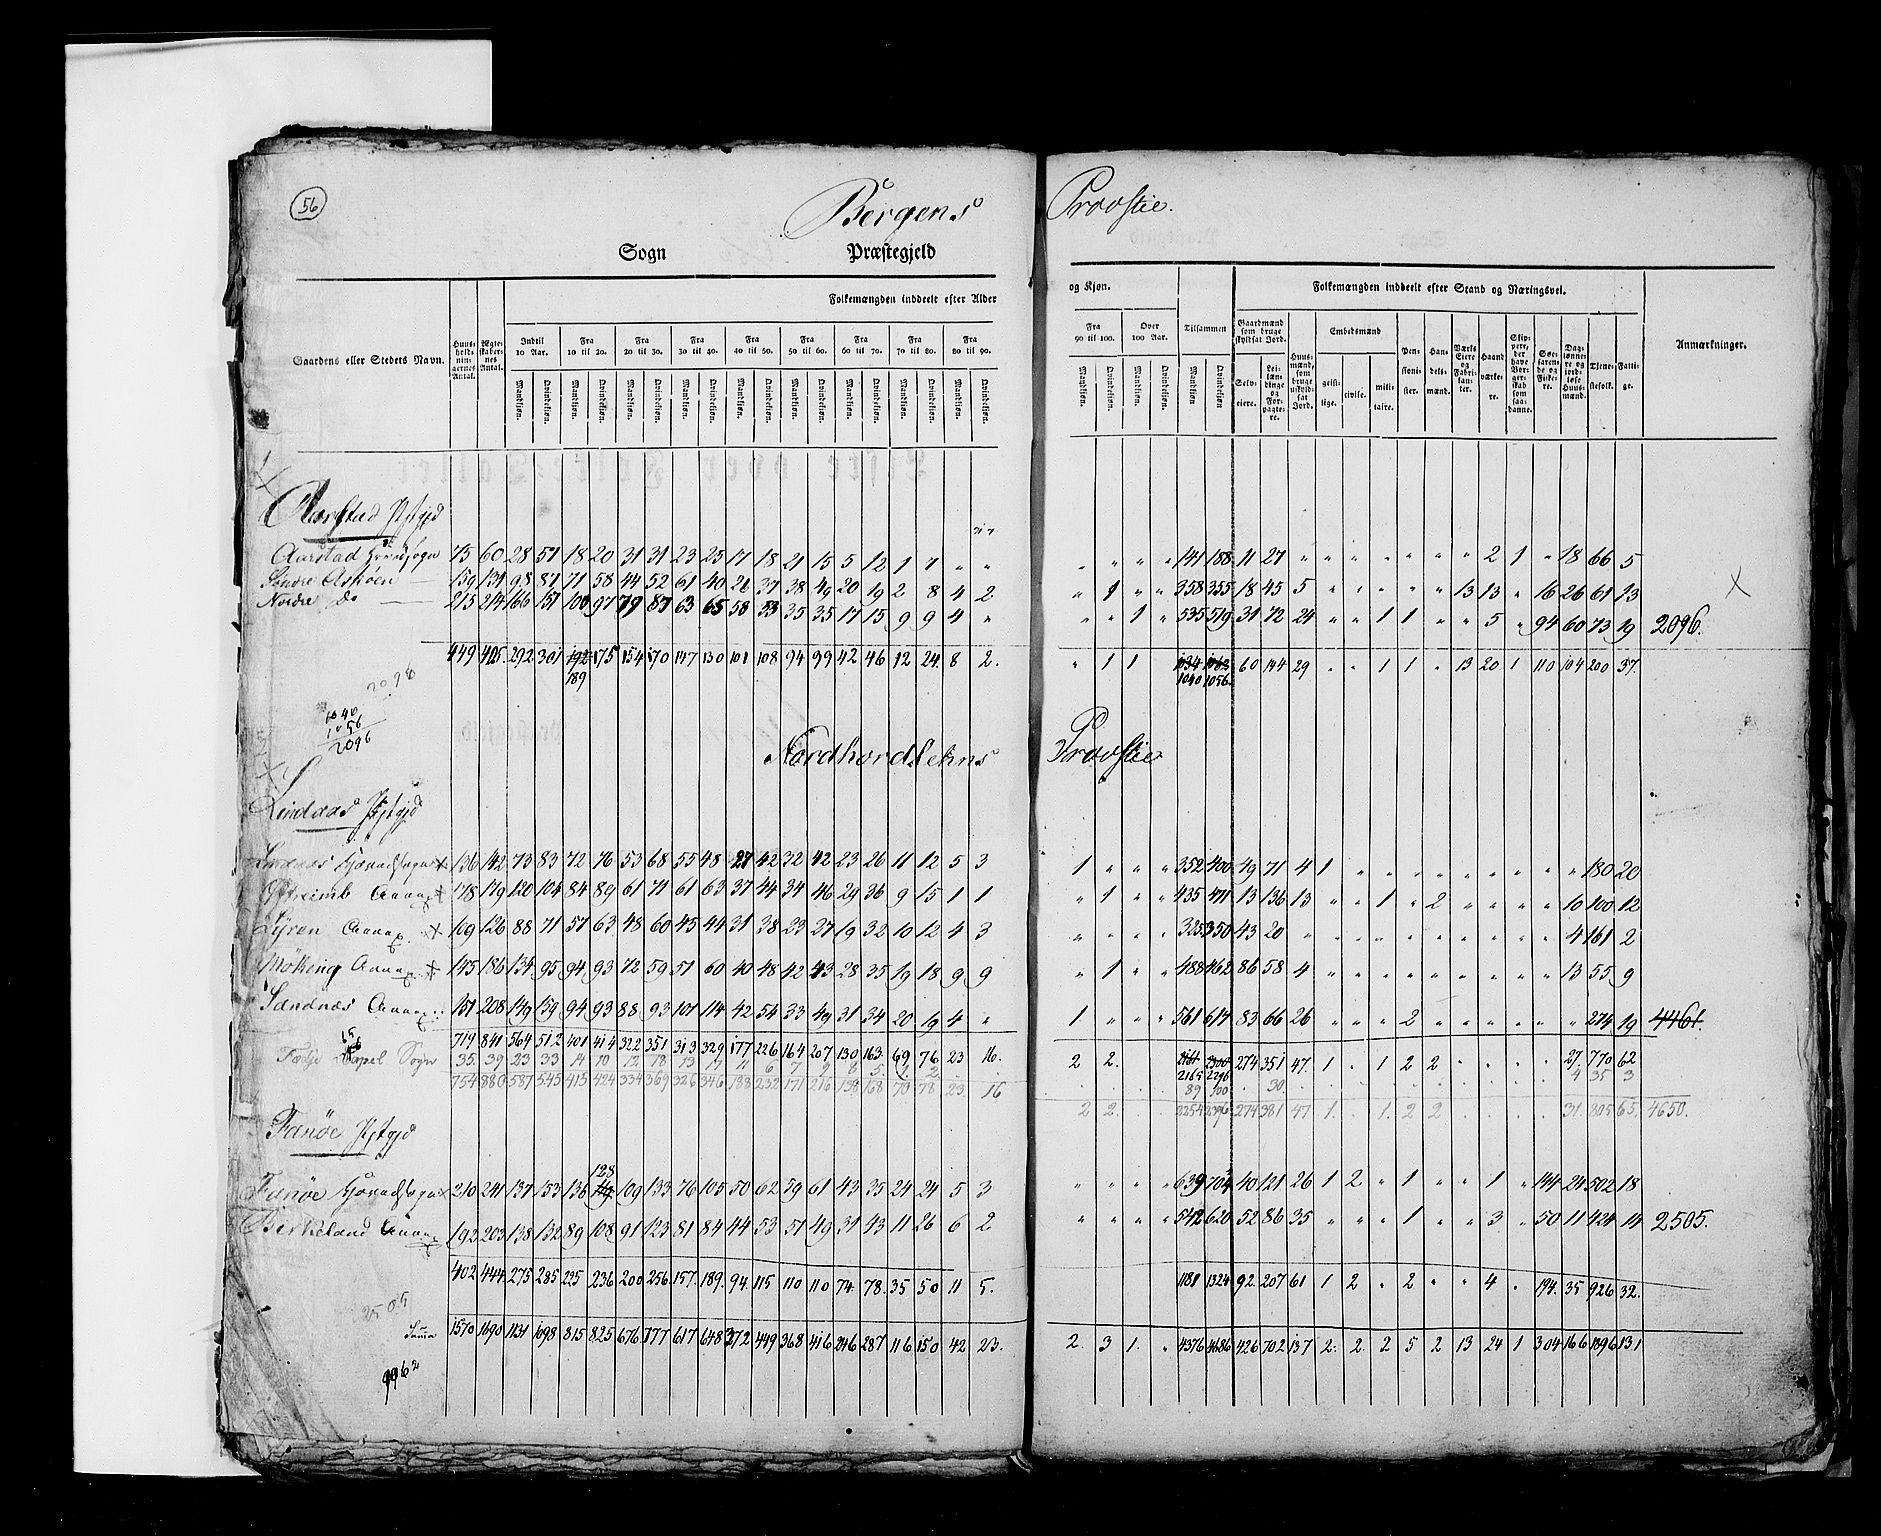 56
Bergens Provstie.
Sogn Præstegjeld
Gaardens eller Stedets Navn.
Huus-holdningernes Antal.
Ægteskabernes Antal.
Folkemængden inddeelt efter Alder og Kjøn.
Indtil 10 Aar. Fra 10 til 20. Fra 20 til 30. Fra 30 til 40. Fra 40 til 50. Fra 50 til 60. Fra 60 til 70. Fra 70 til 80. Fra 80 til 90. Fra 90 til 100. Over 100 Aar. Tilsammen
Mandkjøn. Qvindekjøn.
Folkemængden inddeelt efter Stand og Næringsvei.
Gaardmænd som bruge skyldsat Jord.
Selveiere. Leilændinge og Forpagtere.
Huusmænd, som bruge uskyldsat Jord.
Embedsmænd
geistlige. civile. militaire.
Pensionister.
Handelsmænd.
Værks Eiere og Fabrikanter.
Haandværkere.
Skippere, der have Borgerskab som saadanne.
Søefarende og Fiskere.
Daglønnere og jordløse Huusmænd.
Tjenestefolk.
Fattige.
Anmærkninger.
Aarstad Pstgjd
Aarstad Hovedsogn 75 60 28 51 18 20 31 31 23 25 17 18 21 15 5 12 1 7 " " " " " " 141 188 11 27 " " " " " " " 2 1 " 18 66 5
Søndre Askøen 159 131 98 87 71 58 44 52 61 40 26 37 38 49 20 19 2 8 4 2 " 1 " " 358 355 18 45 5 " " " " " 13 13 " 16 26 61 13
Nordre do 215 214 166 151 100 97 79 87 63 65 58 53 35 35 17 15 9 9 4 " " " 1 " 535 519 31 72 24 " " 1 1 " " 5 " 94 60 73 19 2096.
449 405. 292 301 192 175 154 170 147 130 101 108 94 99 42 46 12 24 8 2. " 1 1 1034 1062 60 144 29 " " 1 1 " 13 20 1 110 104 200 37.
189 1040 1056.
2098
1040
1056
2096
Nordhordlehns Provstie
Lindaas Pstgjd
Hovedsogn 136 142 73 83 72 76 53 68 55 48 27 42 32 42 23 26 11 12 5 3 1 " " " 352 400 49 71 4 1 " " " " " " " " " 180 20
Annex 178 179 120 104 84 89 61 71 61 63 37 44 34 46 29 36 9 15 1 1 " 1 " " 435 471 13 136 13 " " 1 " 2 " " " " 10 100 12
Annex 109 126 88 71 57 63 48 60 45 44 31 38 23 27 19 32 10 12 4 3 " " " " 325 350 43 20 " " " " " " " " " " 4 161 2
Annex 145 186 134 95 94 93 72 59 51 60 40 48 42 43 28 35 19 18 9 9 " 1 " " 488 462 86 58 4 " " " " " " " " " 13 55 9
Sandnæs Annex 151 208 149 159 94 93 88 93 101 114 42 54 33 49 31 34 20 19 4 " 1 " " " 561 617 83 66 26 " " " 2 " " " " " " 274 19 4461.
719 841 564 512 401 414 322 351 313 329 177 226 164 207 130 163 69 76 23 16. 2 2. 2161 2300 274 351 47. 1. . 1 2 2 27 770 62
Capel Sogn 35. 39 23 33 14 10 12 18 13 17 11 6 7 9 8 5 1 2 2165 2296 4 35 3
89 100 30
754 880 587 545 415 424 334 369 326 346 188 232 171 216 138 168 70 78 23. 16 2 2. 2254 2396 274 381 47 1. . 1. 2 2 31. 805 65. 4650.
Fanøe Pstgjd
128
Fanøe Hovedsogn 210 241 137 153 136 119 109 133 76 105 50 62 59 61 43 35 24 24 5 3 " " " " 639 704 40 121 26 1 2 " 1 " " 1 " 144 24 502 18
Birkeland Annex 193 203 138 132 89 108 91 123 81 84 44 53 51 49 31 43 11 26 6 2 " " " " 542 620 52 86 35 " " " 1 " " 3 " 50 11 424 14 2505.
402 444. 275 285 225 236 200 256 157. 189. 94. 115 110 110 74. 78. 35 50 11 5. 1181 1324 92. 207 61 1 2 " 2 " " 4 " 194. 35 926 32.
2505
Suma 1570 1690 1131 1098 815 825 676 777 617 648 372 449 368 416 246 287 116 150 42 23. 2. 3 1. " 4376 4686 426 702 137 2. 2. 2 5 2 13 24 1 304 166 1896 131
9062